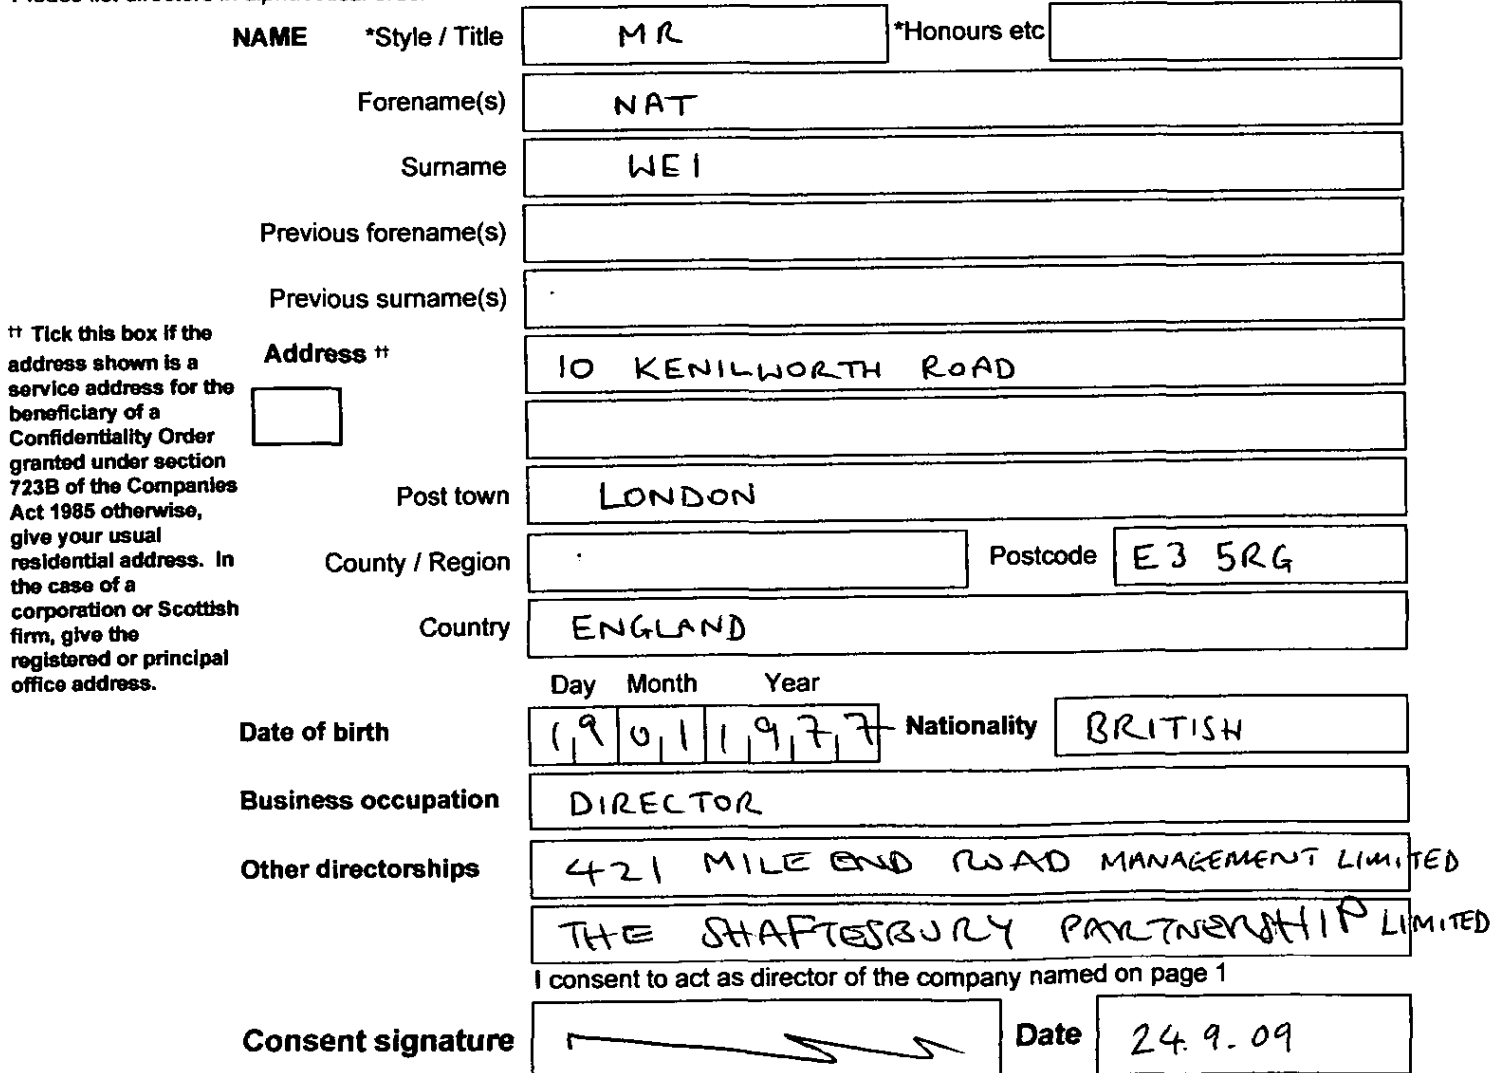 NAME *Style / Title MR *Honours etc
Forename(s) NAT
Surname WEI
Previous forename(s)
Previous surname(s)
†† Tick this box if the
address shown is a
service address for the
beneficiary of a
Confidentiality Order
granted under section
723B of the Companies
Act 1985 otherwise,
give your usual
residential address. In
the case of a
corporation or Scottish
firm, give the
registered or principal
office address.
Address †† 10 KENILWORTH ROAD
Post town LONDON
County / Region Postcode E3 5RG
Country ENGLAND
Day Month Year
Date of birth 19 01 1977 Nationality BRITISH
Business occupation DIRECTOR
Other directorships 421 MILE END ROAD MANAGEMENT LIMITED
THE SHAFTESBURY PARTNERSHIP LIMITED
I consent to act as director of the company named on page 1
Consent signature Date 24.9.09